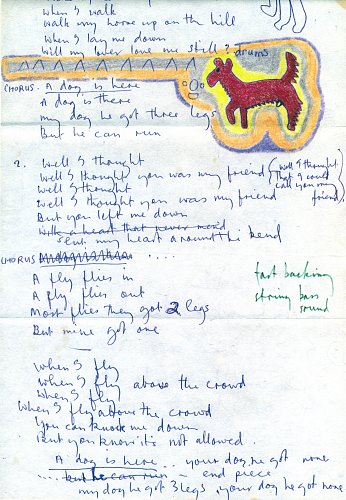 when I walk
walk my horse up on the hill
when I lay me down
will my lover love me still? drums
CHORUS. A dog is here
A dog is there
my dog he got three legs
But he can run
2. Well I thought
Well I thought you was my friend (well I thought
Well I thought that I could
Well I thought you was my friend call you my friend)
But you left me down
with a heart that never
sent my heart around the bend
CHORUS ....
A fly flies in
A fly flies out
Most flies they got 2 legs
But mine got one
fast backing
string bass
sound
When I fly
When I fly above the crowd
When I fly
When I fly above the crowd
You can knock me down
But you know it's not allowed.
A dog is here ... your dog he got none
.... but he can run end piece
my dog he got 3 legs, your dog he got none